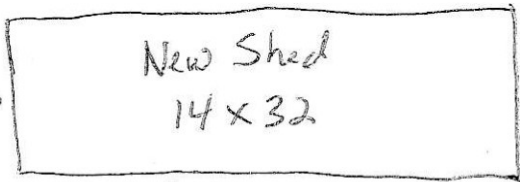 New Shed
14 x 32